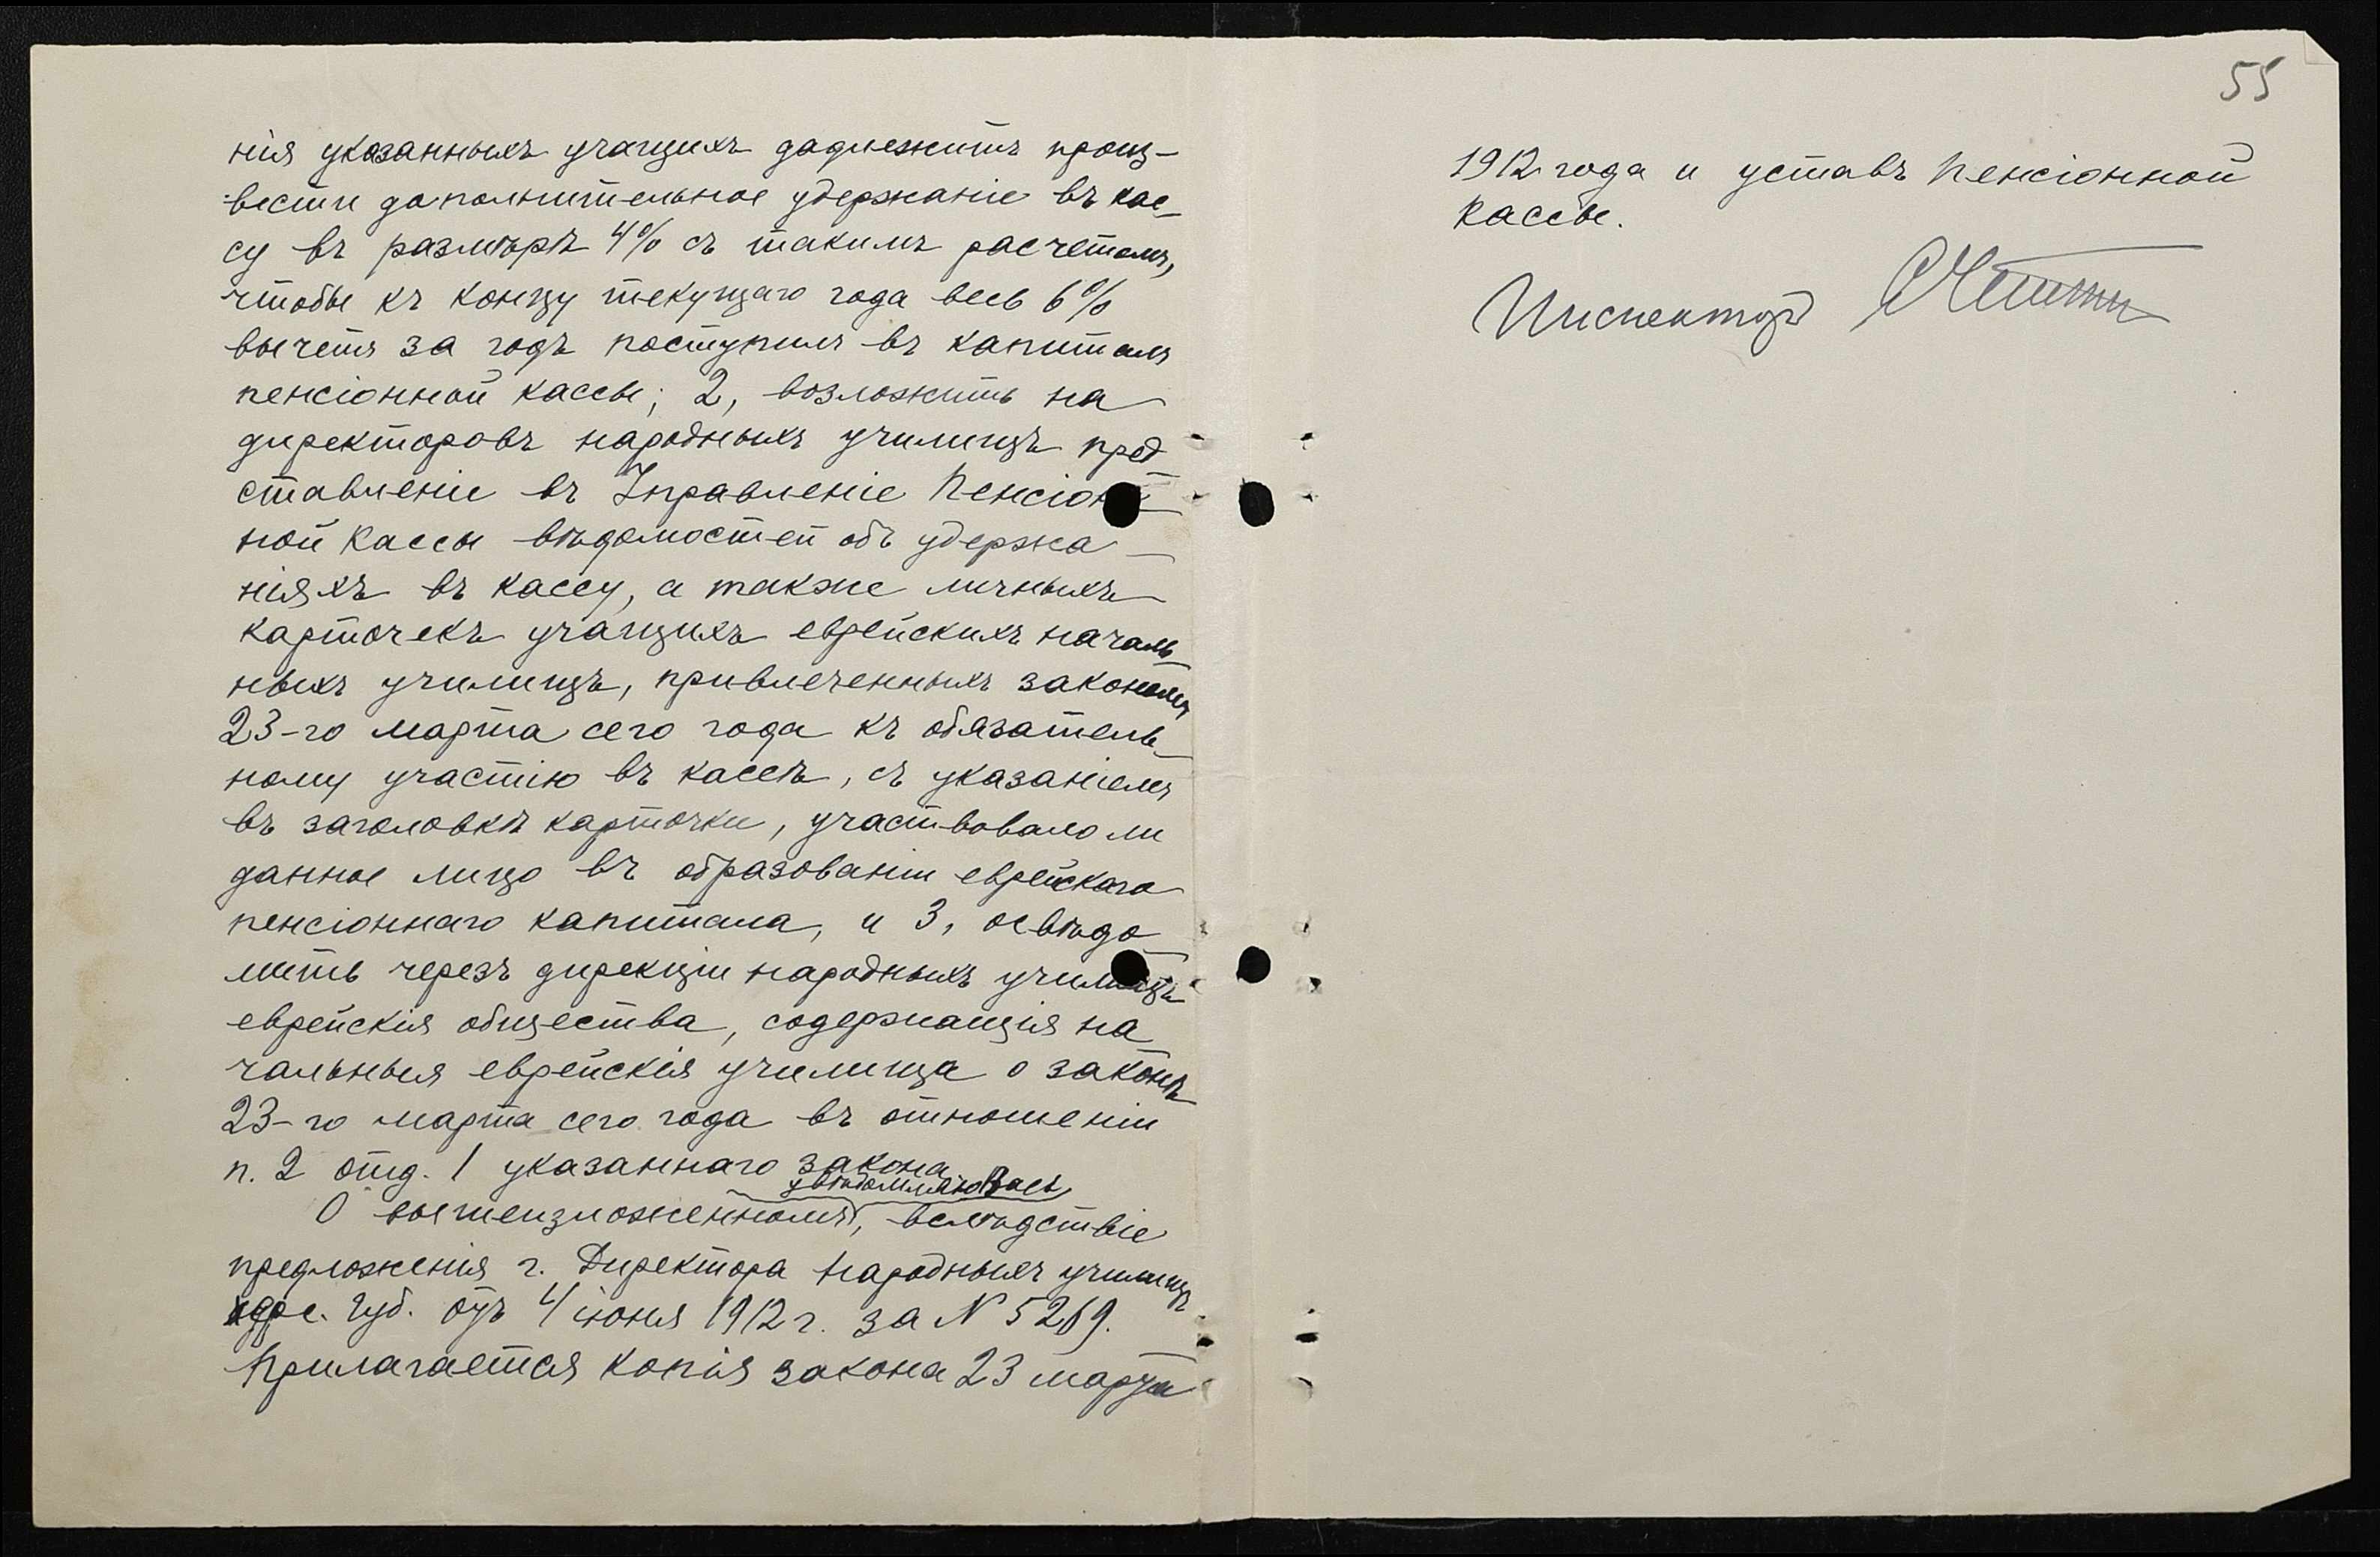 нія указанныхъ учащихъ надлежитъ произ-
вести дополнительное удержаніе въ кас-
су въ размѣрѣ 4% съ такимъ расчетомъ,
чтобы къ концу текущаго года весь 6%
вычетъ за годъ поступилъ въ капиталъ
пенсіонной кассы; 2, возложить на
директоровъ народныхъ училищъ пред
ставленіе въ Управленіе Пенсіон
ной Кассы вѣдомостей объ удержа-
ніяхъ въ кассу, а также личныхъ
карточекъ учащихъ еврейскихъ началь-
ныхъ училищъ, привлеченныхъ закономъ
23-го марта сего года къ обязатель-
ному участію въ кассѣ, съ указаніемъ
въ заголовкѣ карточки, участвовало ли
данное лицо въ образованіи еврейскаго
пенсіоннаго капитала, и 3, освѣдо-
мить черезъ дирекціи народныхъ училищъ
еврейскія общества, содержащія на-
чальныя еврейскія училища о законѣ
23-го марта сего года въ отношеніи
п. 2 отд. 1 указаннаго закона
увѣдомляю Васъ
О вышеизложенномъ, вслѣдствіе
предложенія г. Директора Народныхъ училищъ
губ. отъ 4 іюня 1912 г. за N 5269.
Прилагается копія закона 23 марта
55
1912 года и уставъ Пенсіонной
Кассы.
Инспекторъ